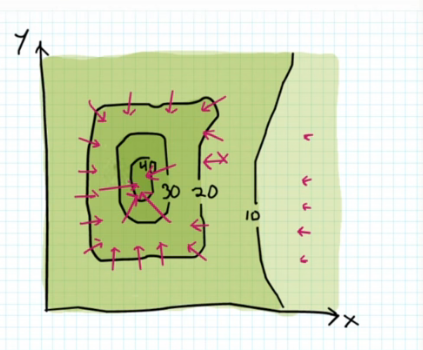 Y
40
30 20
10
x